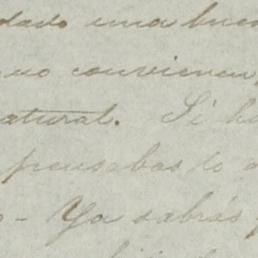 dado una bue
no convienen,
natural. Si h
pensabas lo
- Ya sabrás